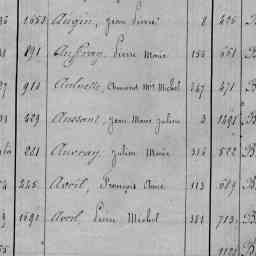 1651 Augin, Jean Pierre 8 426
191 Auffray, Pierre Marie 156 661
913 Aulnette, Amand Mie Michel 247 471
429 Aussant, Jean Marie Julien 2 1491 B
221 Auvray, Julien Marie 316 522 B
225 Avril, François Aimé 113 689 B
1691 Avril, Pierre Michel 381 713 B
1121 B